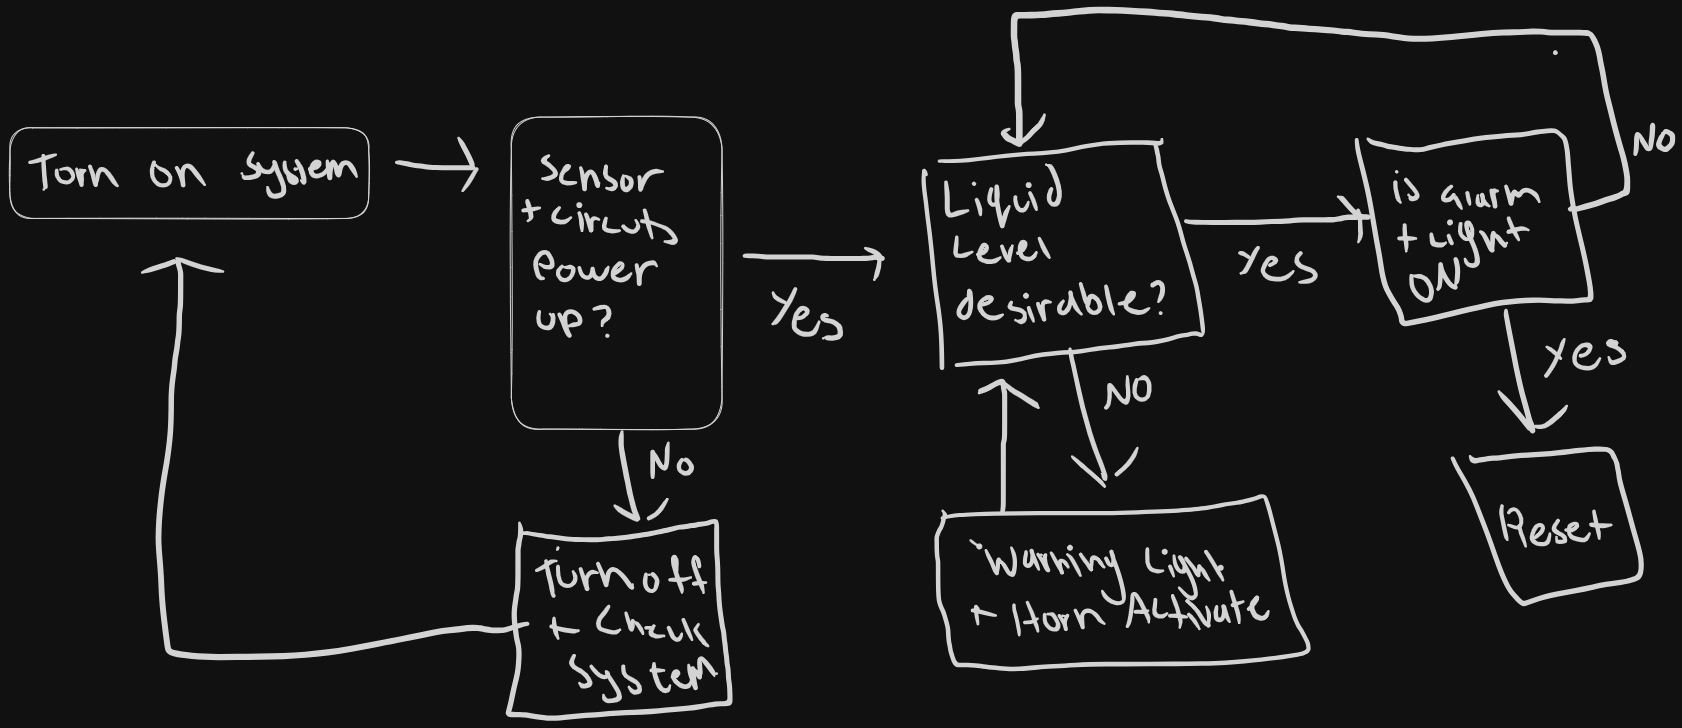 Torn on system
Sensor
+ circuts
Power
up?
Yes
No
Turn off
+ Check
System
Liquid
Level
desirable?
Yes
NO
Warning Light
+ Horn Activate
is alarm
+ Light
ON
NO
Yes
Reset